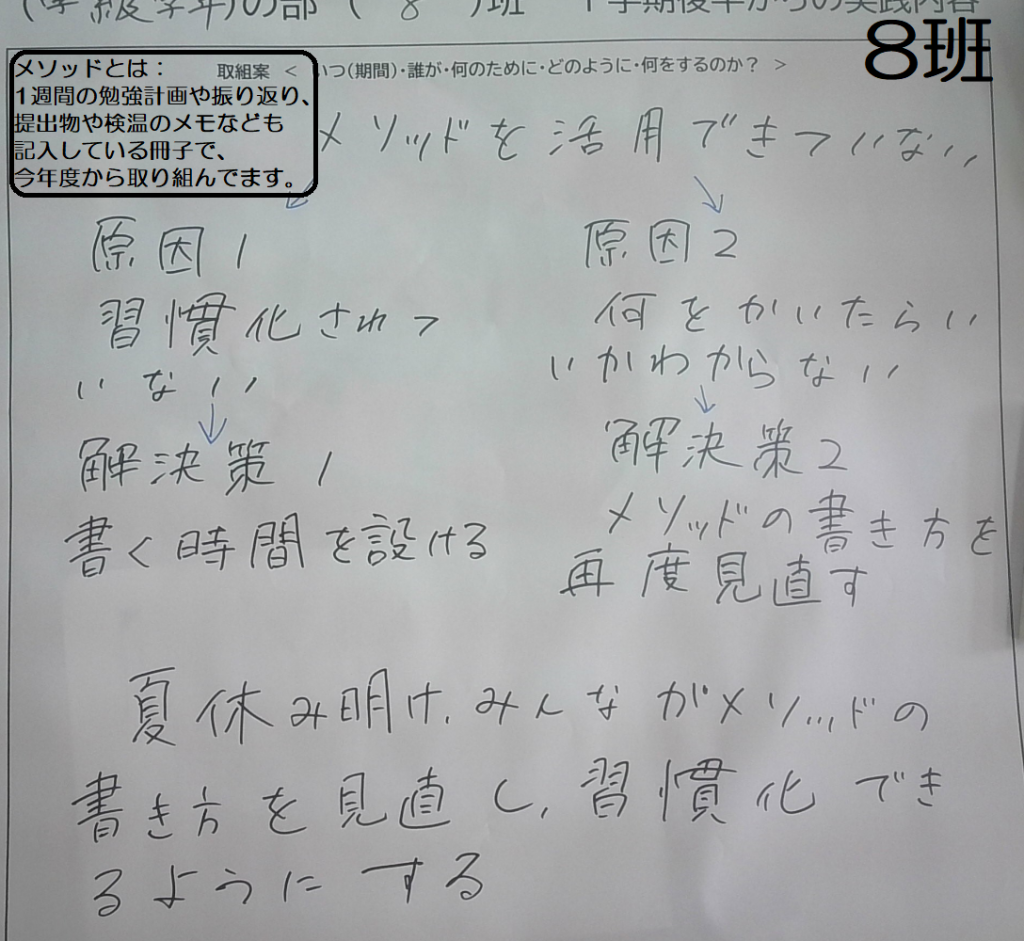 (学級学年)の部 ( 8 )班 1学期後半からの実践内容
8班
メソッドとは：
1週間の勉強計画や振り返り、
提出物や検温のメモなども
記入している冊子で、
今年度から取り組んでます。
取組案 ＜ いつ(期間)・誰が・何のために・どのように・何をするのか？ ＞
メソッドを活用できていない
原因1
習慣化されて
いない
解決策1
書く時間を設ける
原因2
何をかいたらい
いかわからない
解決策2
メソッドの書き方を
再度見直す
夏休み明け、みんながメソッドの
書き方を見直し、習慣化でき
るようにする